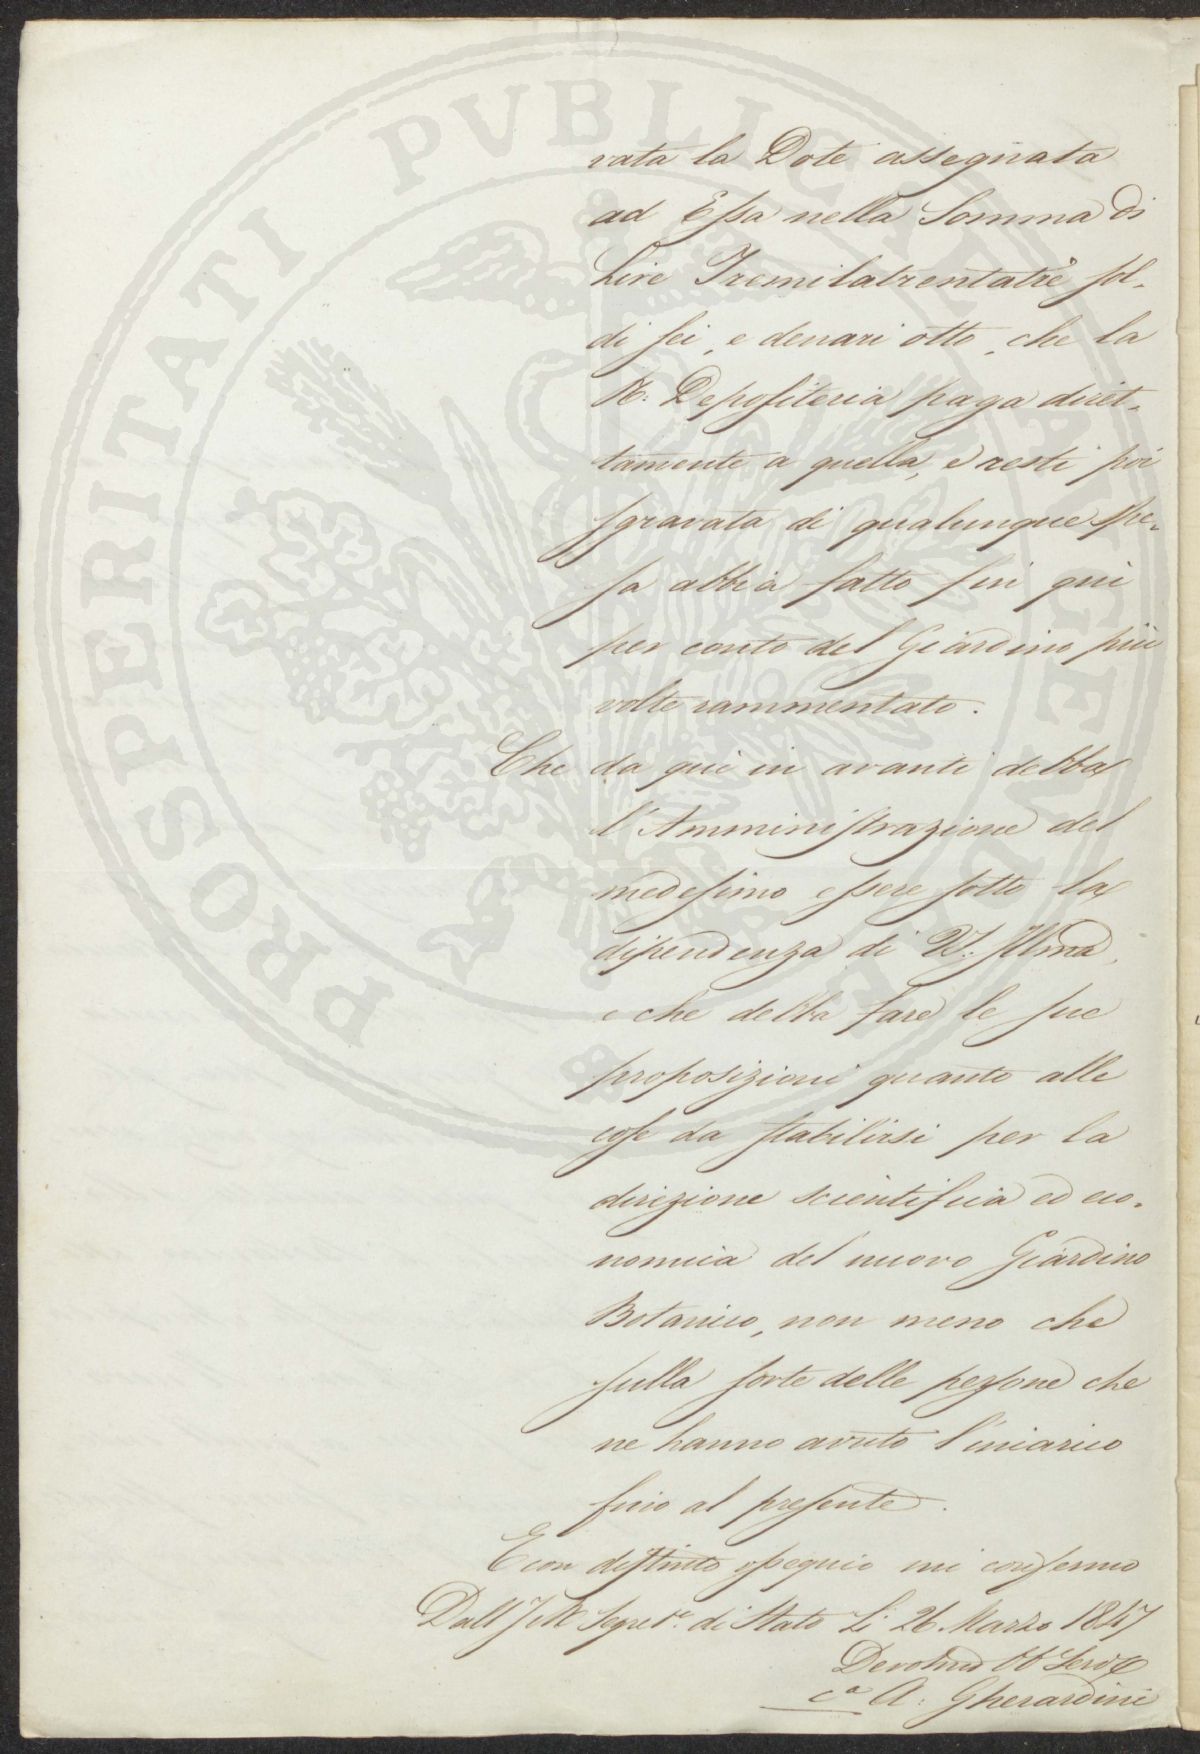 PROSPERITATI PVBLICAE AVGENDAE
vata la Dote assegnata
ad Essa nella Somma di
Lire Tremilatrentatrè sol-
di sei, e denari otto, che la
R. Depositeria paga diret-
tamente a quella, e resti poi
sgravata di qualunque spe-
sa abbia fatto fin qui
per conto del Giardino più
volte rammentato.
Che da qui in avanti debba
l'Amministrazione del
medesimo essere sotto la
dipendenza di V. Illma,
e che debba fare le sue
proposizioni quanto alle
cose da stabilirsi per la
direzione scientifica ed eco-
nomica del nuovo Giardino
Botanico, non meno che
sulla sorte delle persone che
ne hanno avuto l'incarico
fino al presente.
E con distinto ossequio mi confermo
Dall'I e R Segret.ª di Stato Li 26. Marzo 1847
Devotmo Obb Serv
A: Gherardini